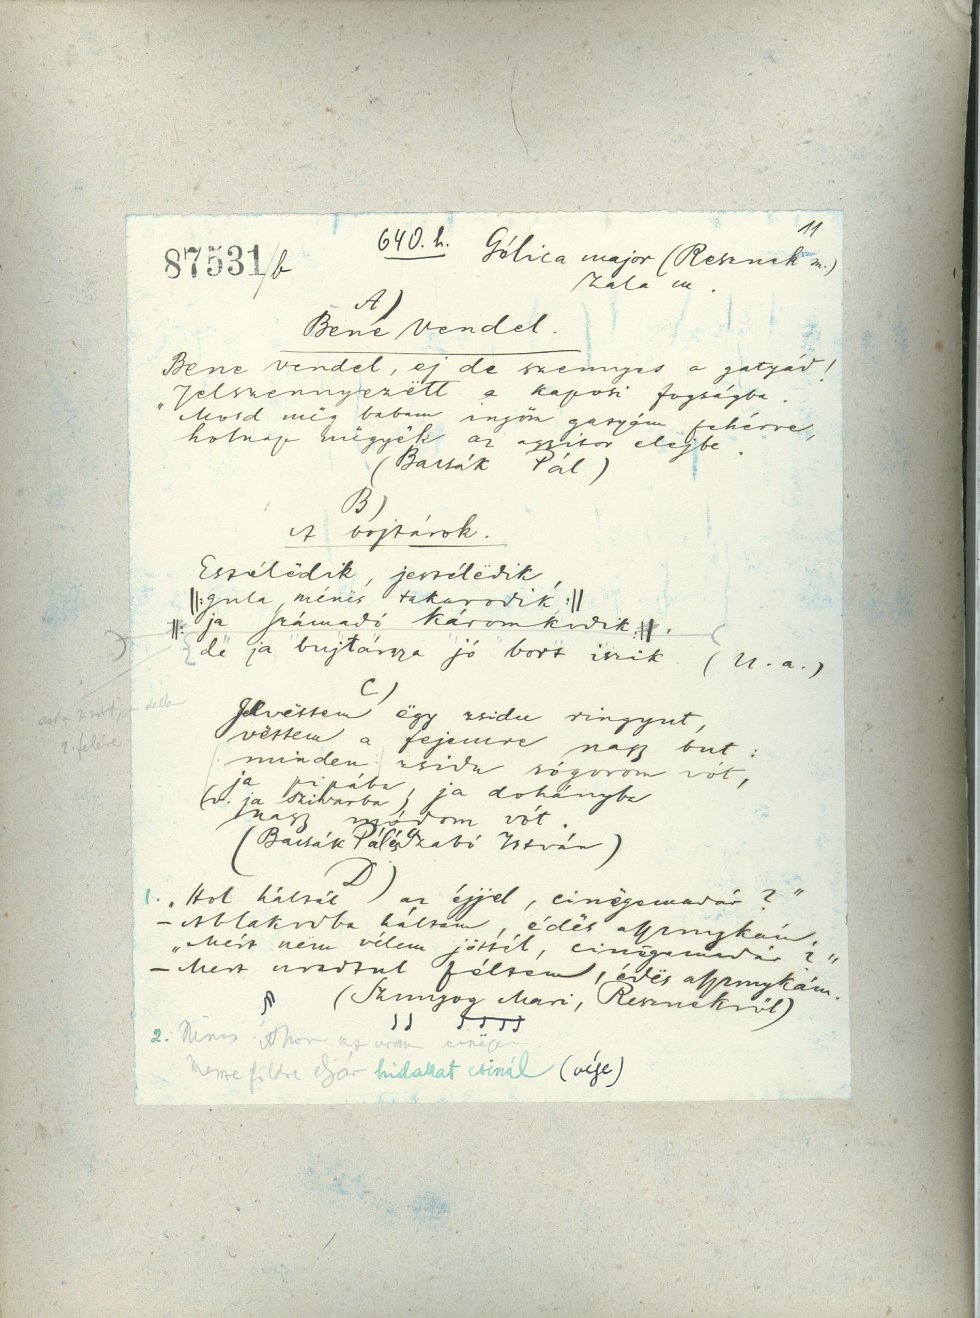 11
87531/b
640. h. Gólica major (Resznek m.)
Zala m.
A)
Bene Vendel.
Bene Vendel, ej de szennyes a gatyád!
Jelszennyezëtt a kaposi fogságba.
"Mosd mëg babam ingöm gatyám fehérre,
holnap mëgyëk az asszitor elejbe.
(Bacsák Pál)
B)
A bojtárok.
Esztélëdik, jesztélëdik,
‖: gula, ménës takarodik :‖
‖: ja számadó káromkodik :‖.
dë ja bujtárssza jó bort iszik. (U. a.)
2. felére
C)
Jelvëttem ëgy zsidu ringyut,
vëttem a fejemre nagy but:
minden zsidu sógorom vót,
ja pipába, ja dohányba
(v. ja szivarba)
nagy módom vót.
(Bacsák Pál és Szabó István)
D)
1. "Hol háltál az éjjel, cinëgemadár?"
– Ablakodba háltam, édës asszonykám.
"Mért nem vélem jöttél, cinëgemadár?"
– Mert uradtul féltem, édës asszonykám.
(Szunyog Mari, Resznekről)
2. Nincs itthon az uram cinëgem
Messze földre eljár hidakat csinál (vége)